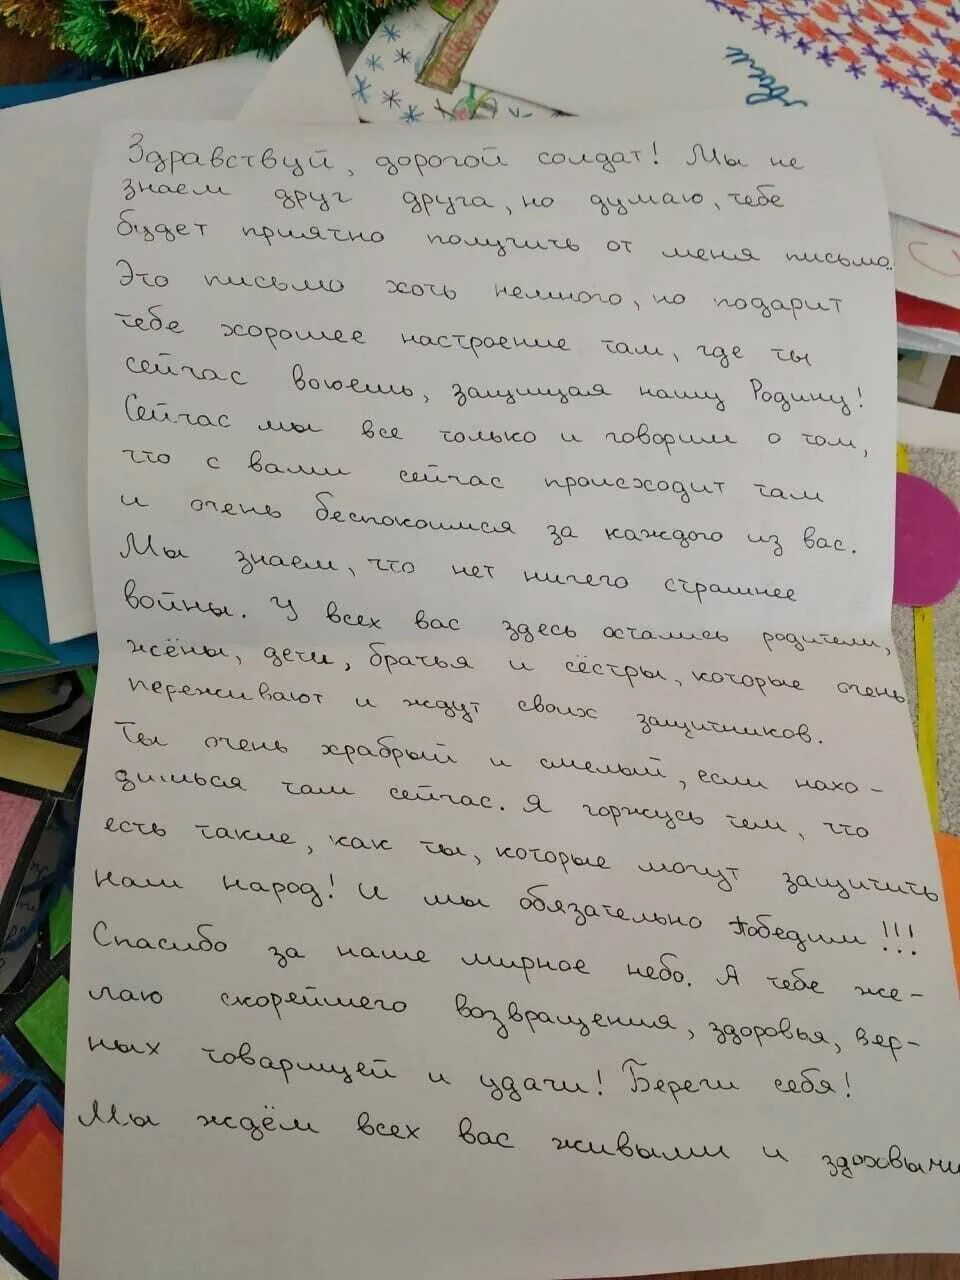 Здравствуй, дорогой солдат! Мы не
знаем друг друга, но думаю, тебе
будет приятно получить от меня письмо.
Это письмо хоть немного, но подарит
тебе хорошее настроение там, где ты
сейчас воюешь, защищая нашу Родину!
Сейчас мы все только и говорим о том,
что с вами сейчас происходит там
и очень беспокоимся за каждого из вас.
Мы знаем, что нет ничего страшнее
войны. У всех вас здесь остались родители,
жёны, дети, братья и сёстры, которые очень
переживают и ждут своих защитников.
Ты очень храбрый и смелый, если нахо-
дишься там сейчас. Я горжусь тем, что
есть такие, как ты, которые могут защитить
наш народ! И мы обязательно победим!!!
Спасибо за наше мирное небо. А тебе же-
лаю скорейшего возвращения, здоровья, вер-
ных товарищей и удачи! Береги себя!
Мы ждём всех вас живыми и здоровыми